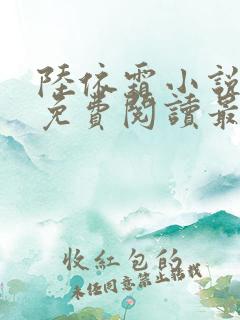 陸依霜小說
免費閱讀最
收紅包的
未经同意禁止转载